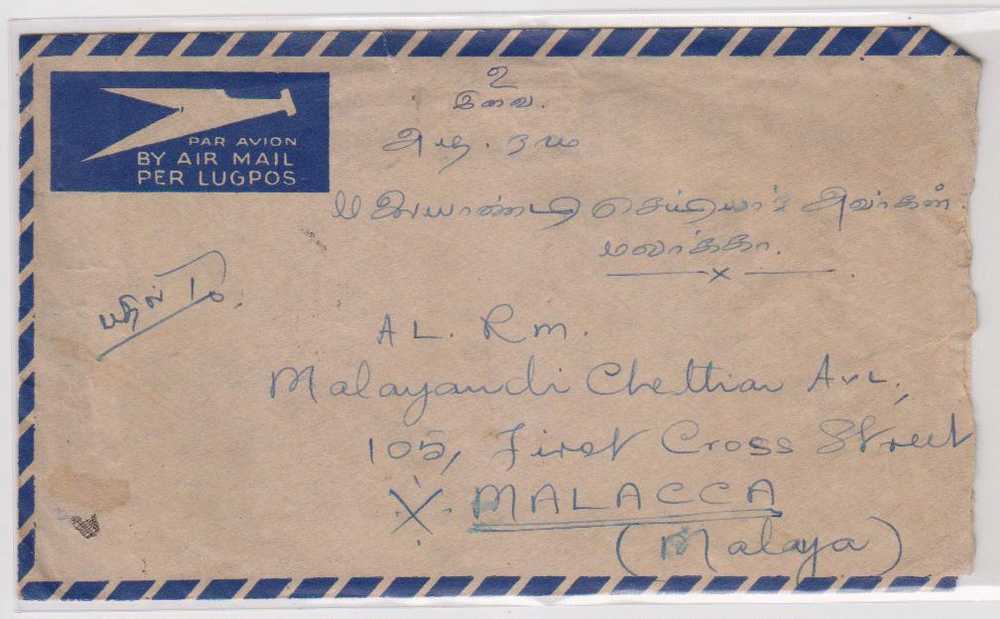 PAR AVION
BY AIR MAIL
PER LUGPOS
உ
இவை.
மலையாண்டி செட்டியார் அவர்கள்.
மலாக்கா.
x
பதில்
AL. Rm.
Malayandi Chettiar Avl,
105, First Cross Street
X. MALACCA
(Malaya)